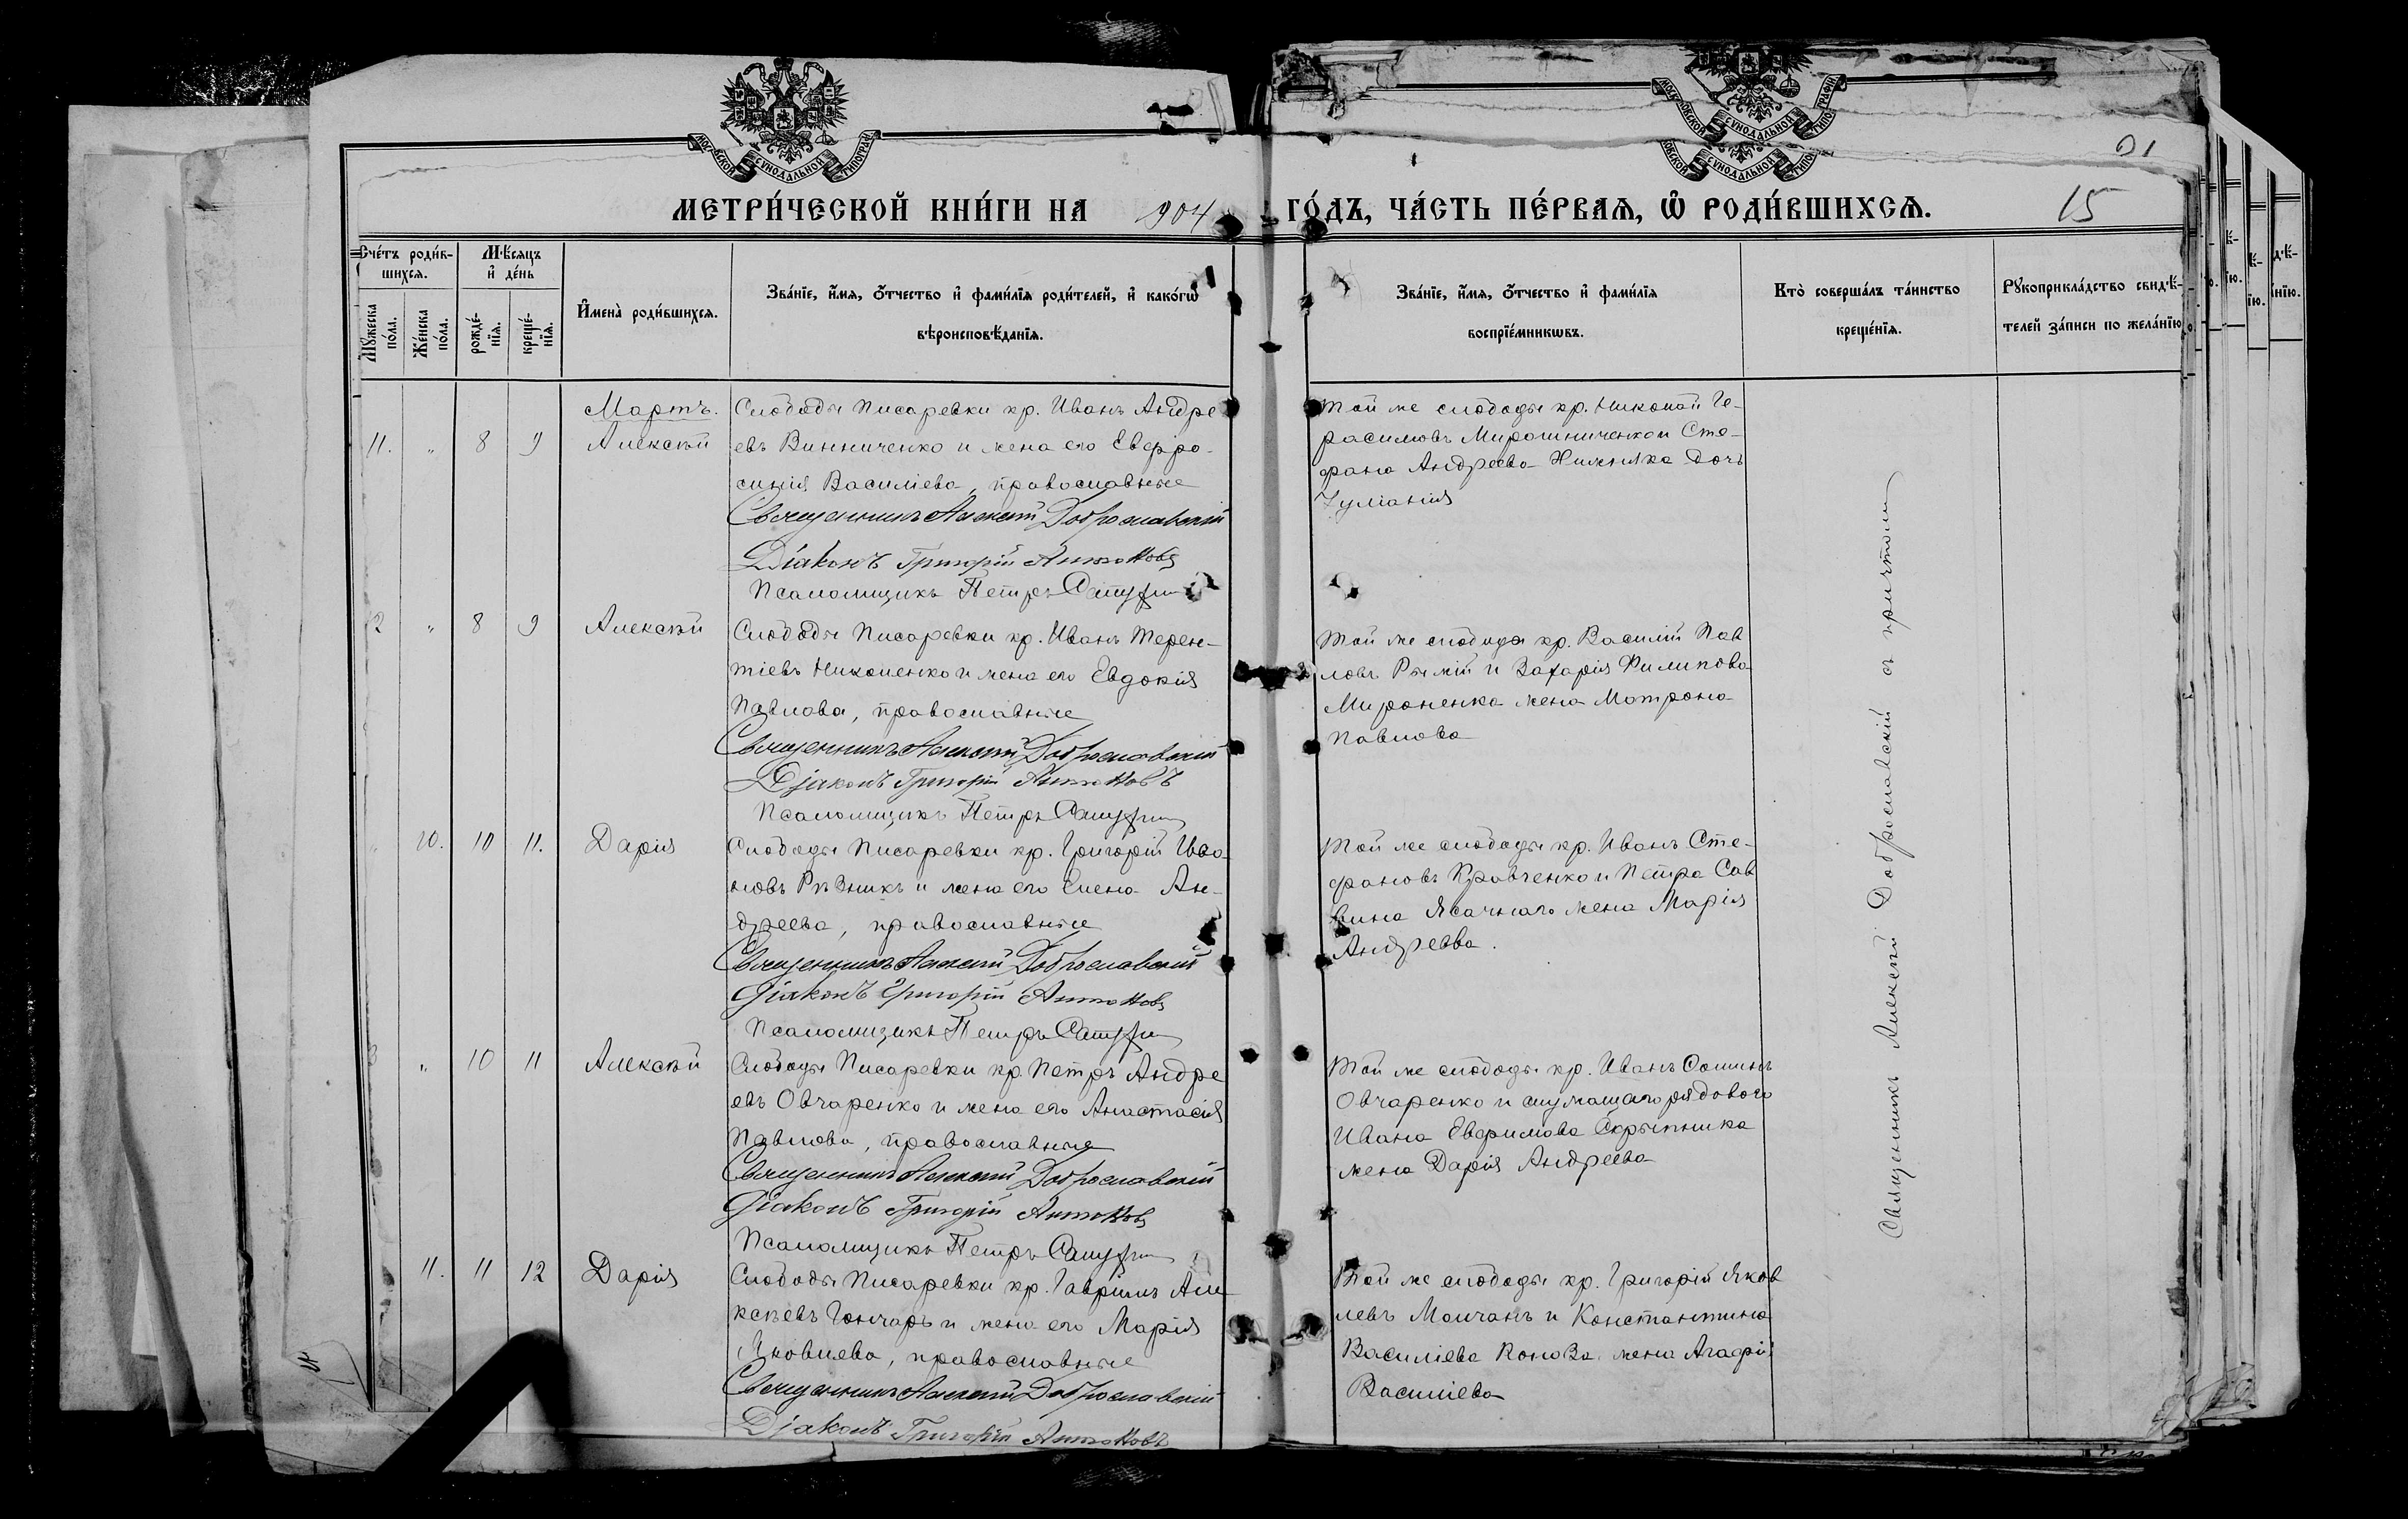 МОСКОВСКОЙ СѴНОДАЛЬНОЙ ТИПОГРАФ
МОСКОВСКОЙ СѴНОДАЛЬНОЙ ТИПОГРАФІИ
ОВСКОЙ СѴНОДАЛЬНОЙ ТИПО
МЕТРИ́ЧЕСКОЙ КНИ́ГИ НА 904 ГО́ДЪ, ЧА́СТЬ ПЕ́РВАѦ, Ѽ РОДИ́ВШИХСѦ.
15
Сче́тъ роди́в-
шихсѧ.
Мꙋжеска по́ла.
Же́нска по́ла.
Мѣ́сѧцъ
и҆ де́нь
рожде́-нїѧ.
креще́-нїѧ.
И҆мена̀ роди́вшихсѧ.
Зва́нїе, и҆́мѧ, ѻ҆́тчество и҆ фами́лїѧ роди́телей, и҆ како́гѡ
вѣроисповѣ́данїѧ.
Зва́нїе, и҆́мѧ, ѻ҆́тчество и҆ фами́лїѧ
воспрїе́мникѡвъ.
Кто̀ соверша́лъ та́инство
креще́нїѧ.
Рꙋкоприкла́дство свидѣ́-
телей за́писи по жела́нїю
Мартъ.
11. " 8 9 Алексѣй
Слободы Писаревки кр. Иванъ Андре
евъ Винниченко и жена его Евфро-
синія Василіева, православные
Священникъ Алексѣй Доброславскій
Діаконъ Григорій Антоновъ
Псаломщикъ Петръ
Той же слободы кр. Николай Ге-
расимовъ Мирошниченко и Сте-
фана Андреева Нижника дочь
Іуліанія
2 " 8 9 Алексѣй
Слободы Писаревки кр. Иванъ Терен-
тіевъ Николенко и жена его Евдокія
Павлова, православные
Священникъ Алексѣй Доброславскій
Діаконъ Григорій Антоновъ
Псаломщикъ Петръ
Той же слободы кр. Василій Пав
ловъ Рыжій и Захарія Филипова
Мироненка жена Матрона
Павлова
" 10. 10 11. Дарія
Слободы Писаревки кр. Григорій Ива-
новъ Рѣзникъ и жена его Елена Ан-
дреева, православные
Священникъ Алексѣй Доброславскій
Діаконъ Григорій Антоновъ
Псаломщикъ Петръ
Той же слободы кр. Иванъ Сте-
фановъ Кравченко и Петра Сав
вина Ясачнаго жена Марія
Андреева.
3 " 10 11 Алексѣй
Слободы Писаревки кр. Петръ Андре
евъ Овчаренко и жена его Анастасія
Павлова, православные
Священникъ Алексѣй Доброславскій
Діаконъ Григорій Антоновъ
Псаломщикъ Петръ
Той же слободы кр. Иванъ Саминъ
Овчаренко и служащаго рядового
Ивана Евфимова Скрыпника
жена Дарія Андреева
11. 11 12 Дарія
Слободы Писаревки кр. Гавріилъ Але-
ксѣевъ Гончаръ и жена его Марія
Яковлева, православные
Священникъ Алексѣй Доброславскій
Діаконъ Григорій Антоновъ
Той же слободы кр. Григорій Яков
левъ Молчанъ и Константина
Василіева Коноза жена Агафія
Василіева
Священникъ Алексѣй Доброславскій съ причтомъ